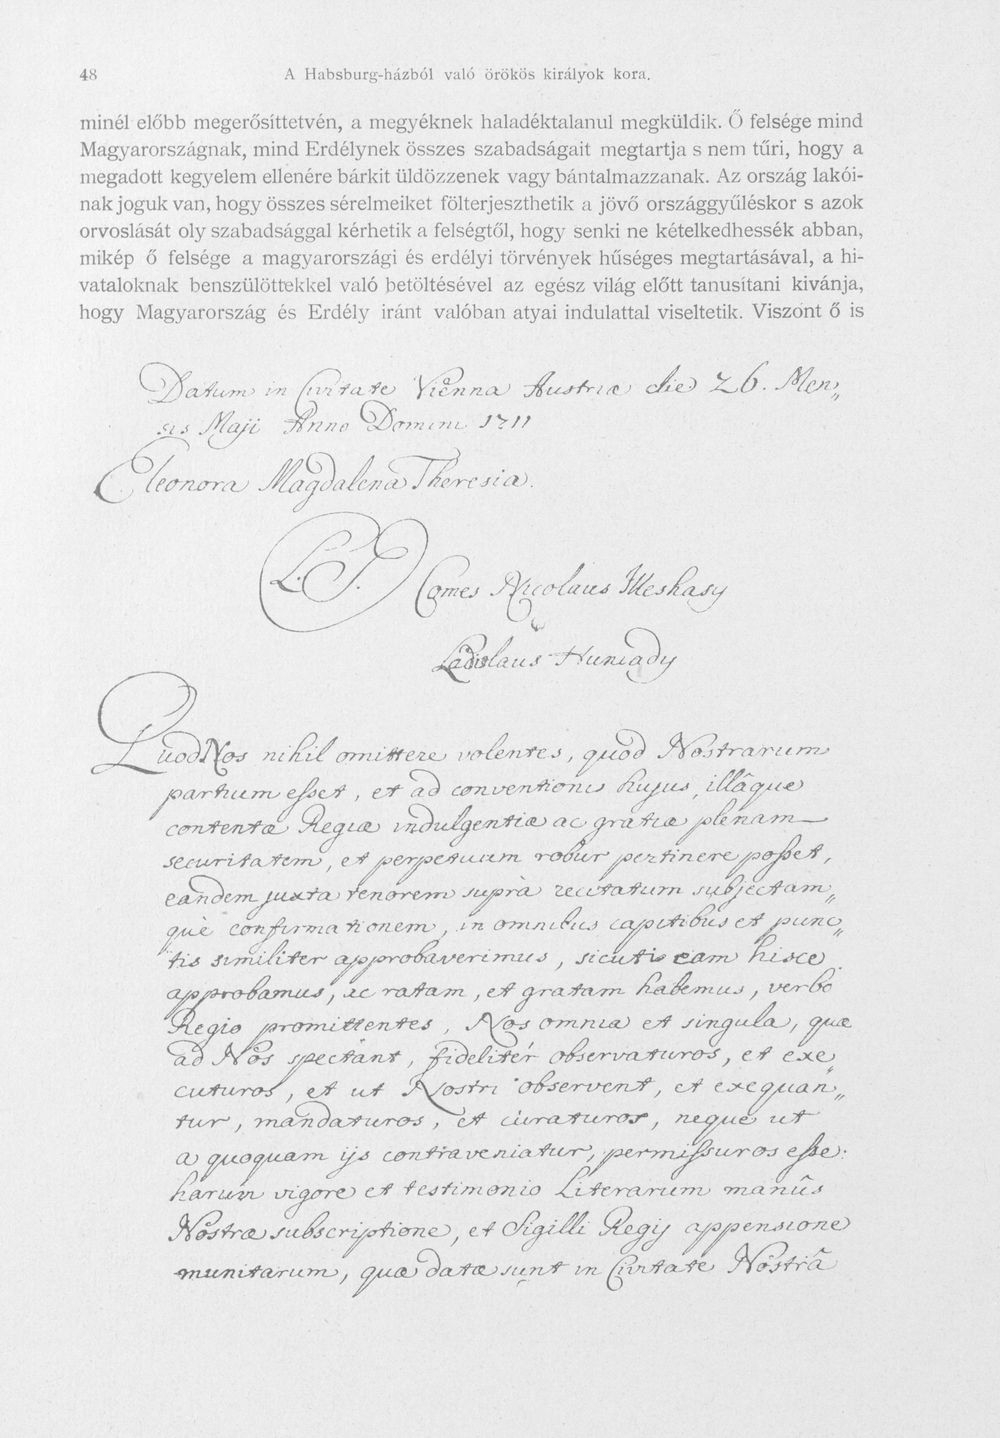 48
A Habsburg-házból való örökös királyok kora.
minél előbb megerősíttetvén, a megyéknek haladéktalanul megküldik. Ő felsége mind
Magyarországnak, mind Erdélynek összes szabadságait megtartja s nem tűri, hogy a
megadott kegyelem ellenére bárkit üldözzenek vagy bántalmazzanak. Az ország lakói-
nak joguk van, hogy összes sérelmeiket fölterjeszthetik a jövő országgyűléskor s azok
orvoslását oly szabadsággal kérhetik a felségtől, hogy senki ne kételkedhessék abban,
mikép ő felsége a magyarországi és erdélyi törvények hűséges megtartásával, a hi-
vataloknak benszülöttekkel való betöltésével az egész világ előtt tanusítani kivánja,
hogy Magyarország és Erdély iránt valóban atyai indulattal viseltetik. Viszont ő is
Datum in Civitate Viennæ Austriæ die 26. Men„
sis Maji Anno Domini 1711
Eleonora Magdalena Theresia.
L. S.
Comes Nicolaus Illeshasy
Ladislaus Huniady
Quod Nos nihil omittere volentes, quod Nostrarum
partium esset, et ad conventionis hujus, illâque
contentæ Regiæ indulgentiæ ac gratiæ plenam
securitatem, et perpetuum robur pertinere posset,
eandem juxta tenorem suprà recitatum subjectam„
què confirmationem, in omnibus capitibus et punc„
tis similiter approbaverimus, sicuti eam hisce
approbamus, ac ratam, et gratam habemus, verbo
Regio promittentes, Nos omnia et singula, quæ
ad Nos spectant, fidelitèr observaturos, et exe„
cuturos, et ut Nostri observent, et exequan„
tur, mandaturos, et curaturos, neque ut
a quoquam ijs contraveniatur, permissuros esse:
harum vigore et testimonio Literarum manûs
Nostræ subscriptione, et Sigilli Regij appensione
munitarum, quæ datæ sunt in Civitate Nostrâ